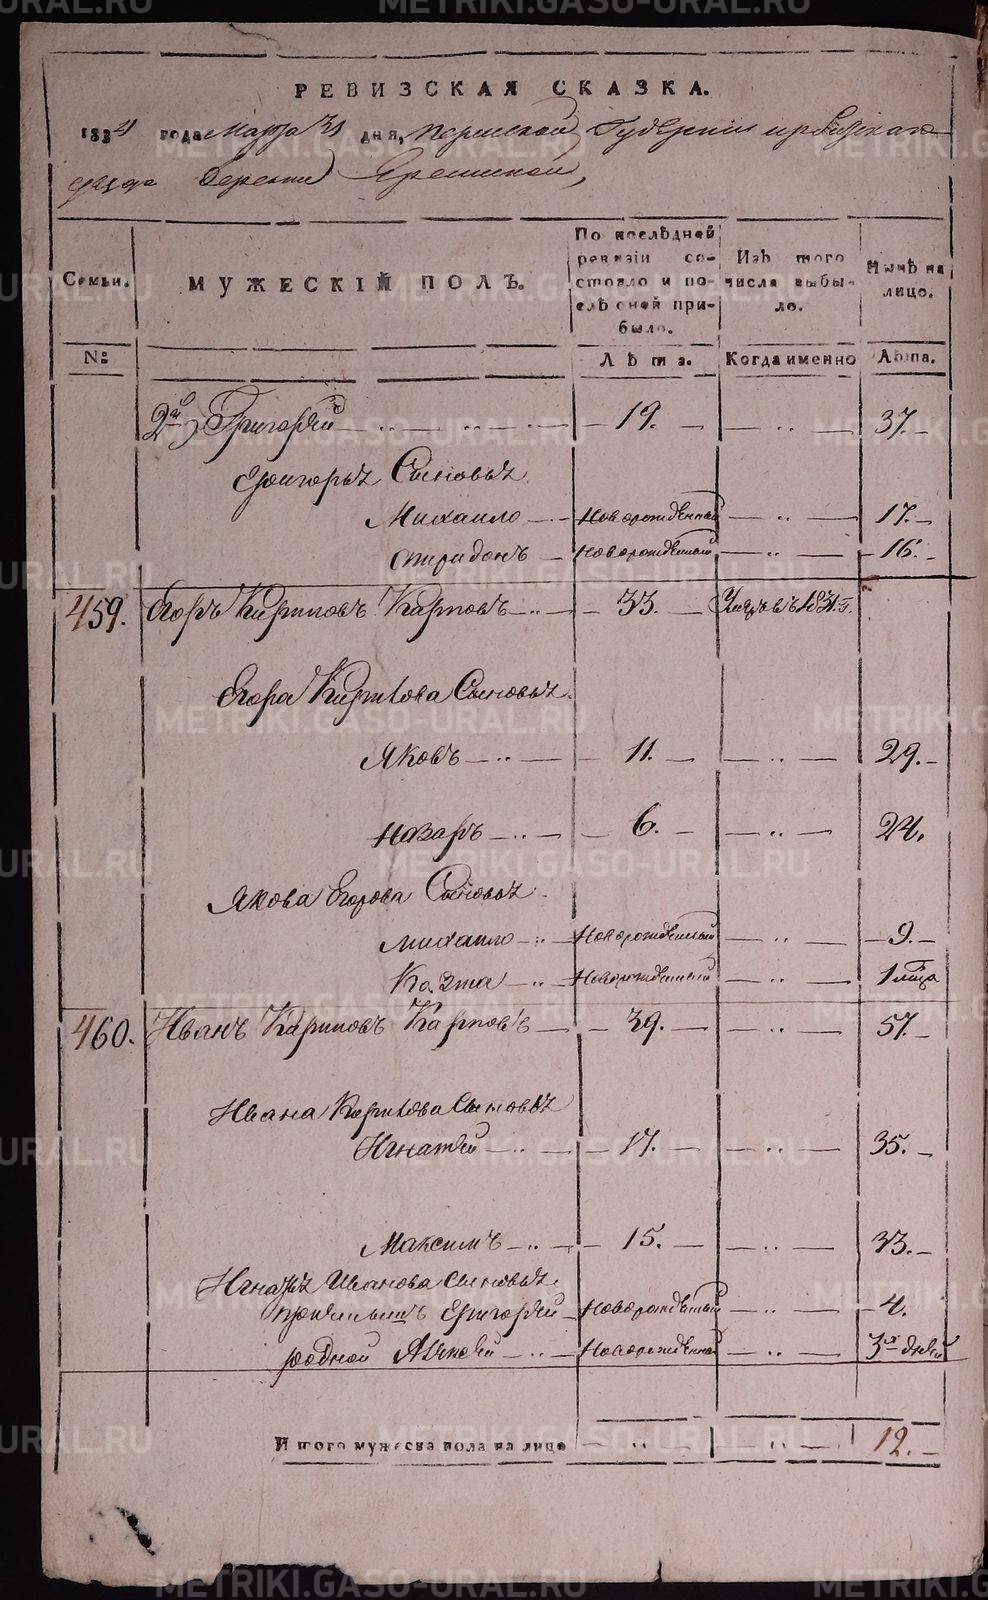 METRIKI.GASO-URAL.RU
РЕВИЗСКАЯ СКАЗКА.
1834 года Марта 31 дня, Пермской Губернии Ирбитскаго
уезда Деревни
Семьи.
МУЖЕСКІЙ ПОЛЪ.
По послѣдней ревизіи состояло и послѣ оней прибыло.
Изъ того числа выбыло.
Нынѣ на лицо.
№
Лѣта.
Когда именно
Лѣта.
2й Григорей 19. 37.
Григорья Сыновья
Михаило Новорожденный 17.
Спиридонъ Новорожденный 16.
459. Егоръ Кириловъ Карповъ 33. Умръ въ 1831 г.
Егора Кирилова Сыновья
Яковъ 11. 29.
Назаръ 6. 24.
Якова Егорова Сыновья
Михаило Новорожденный 9.
Козма Новорожденный 1 мѣца
460. Иванъ Кириловъ Карповъ 39. 57.
Ивана Кирилова Сыновья
Игнатей 17. 35.
Максимъ 15. 33.
Игнатья Иванова Сыновья
Григорей Новорожденный 4.
родной Алексей Новорожденный 3х дней
Итого мужеска пола на лицо 12.